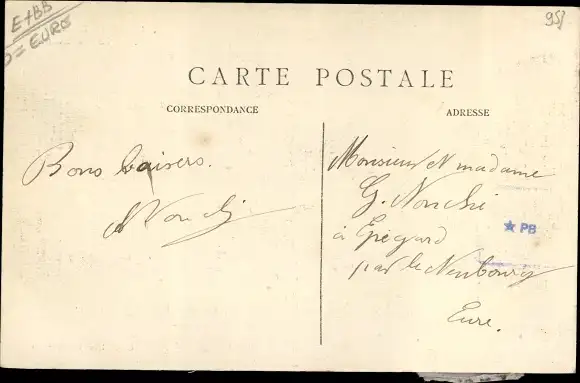 E+BB
= EURE
953
CARTE POSTALE
CORRESPONDANCE
ADRESSE
Bons baisers.
Monsieur et madame
G. Nouchi
à Epégard
par le Neubourg
Eure.
★ PB